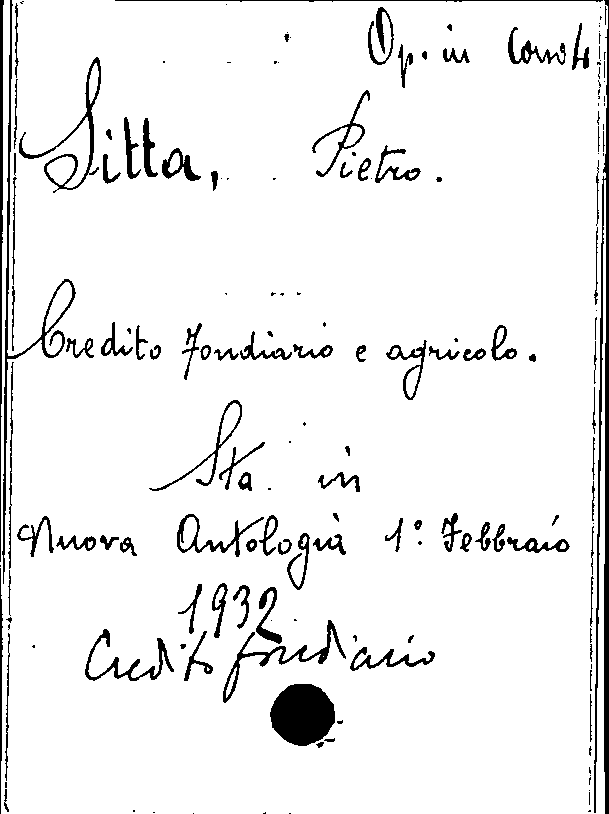 Op. in
Sitta, Pietro.
Credito fondiario e agricolo.
Sta in
Nuova Antologia 1° Febbraio
1932
Credito fondiario